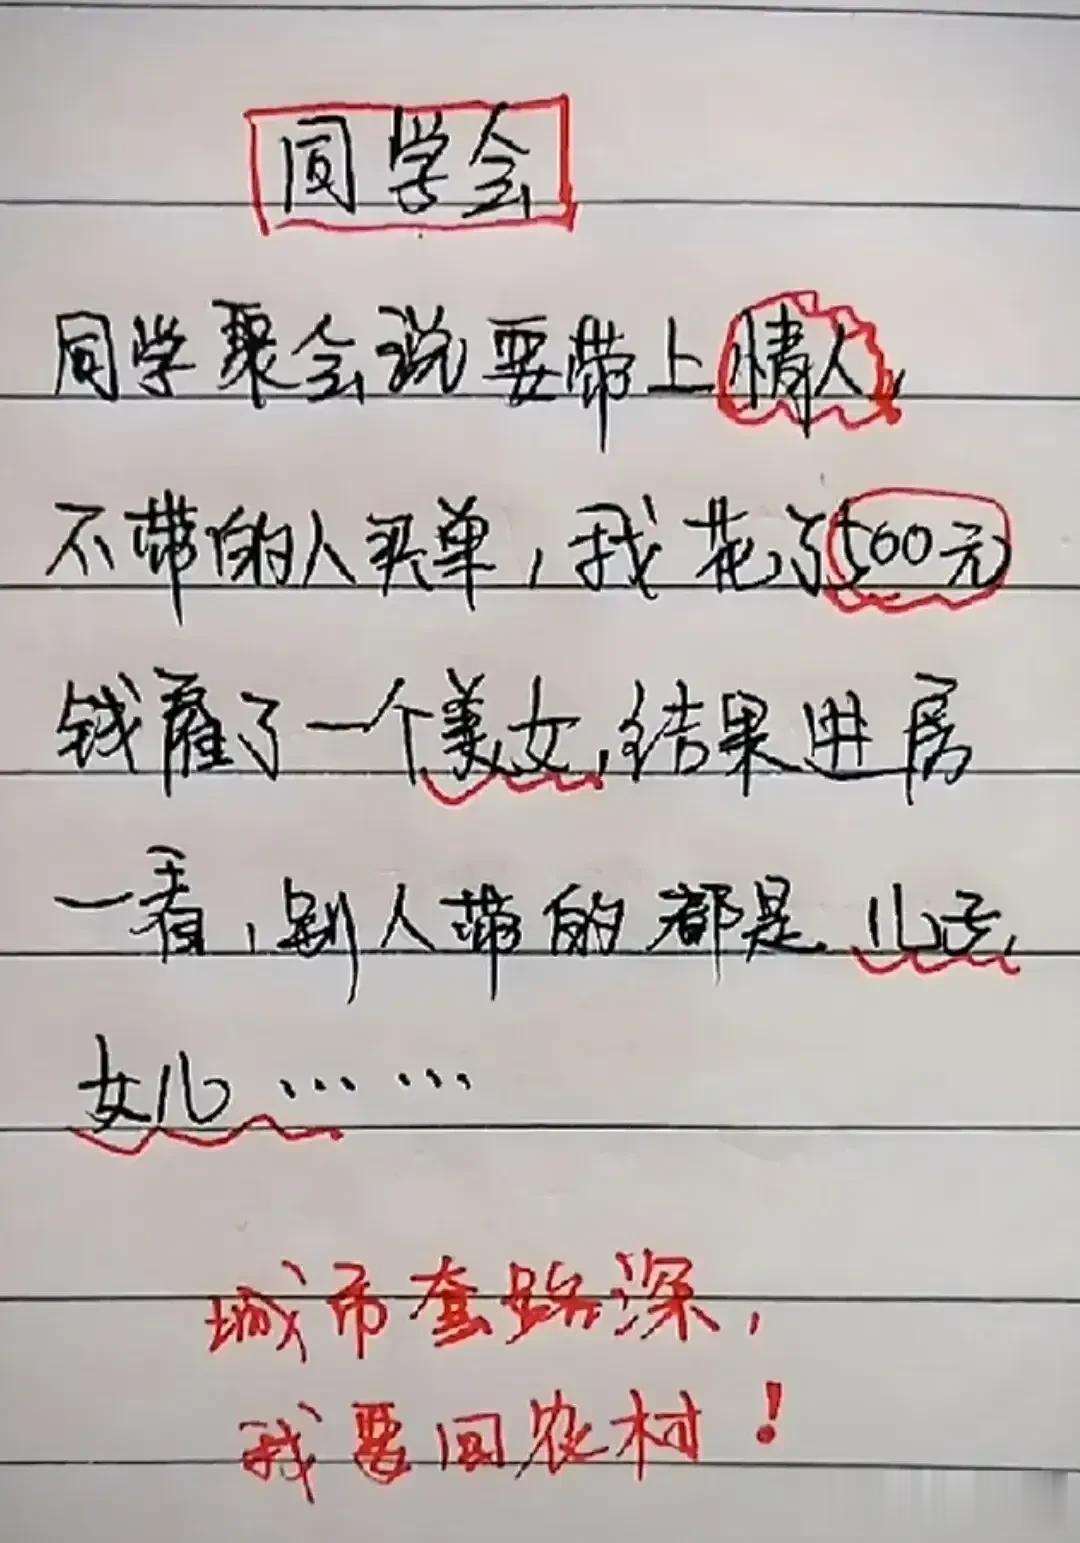 同学会
同学聚会说要带上情人,
不带的人买单,我花了500元
钱雇了一个美女,结果进房
一看,别人带的都是儿子,
女儿……
城市套路深,
我要回农村!